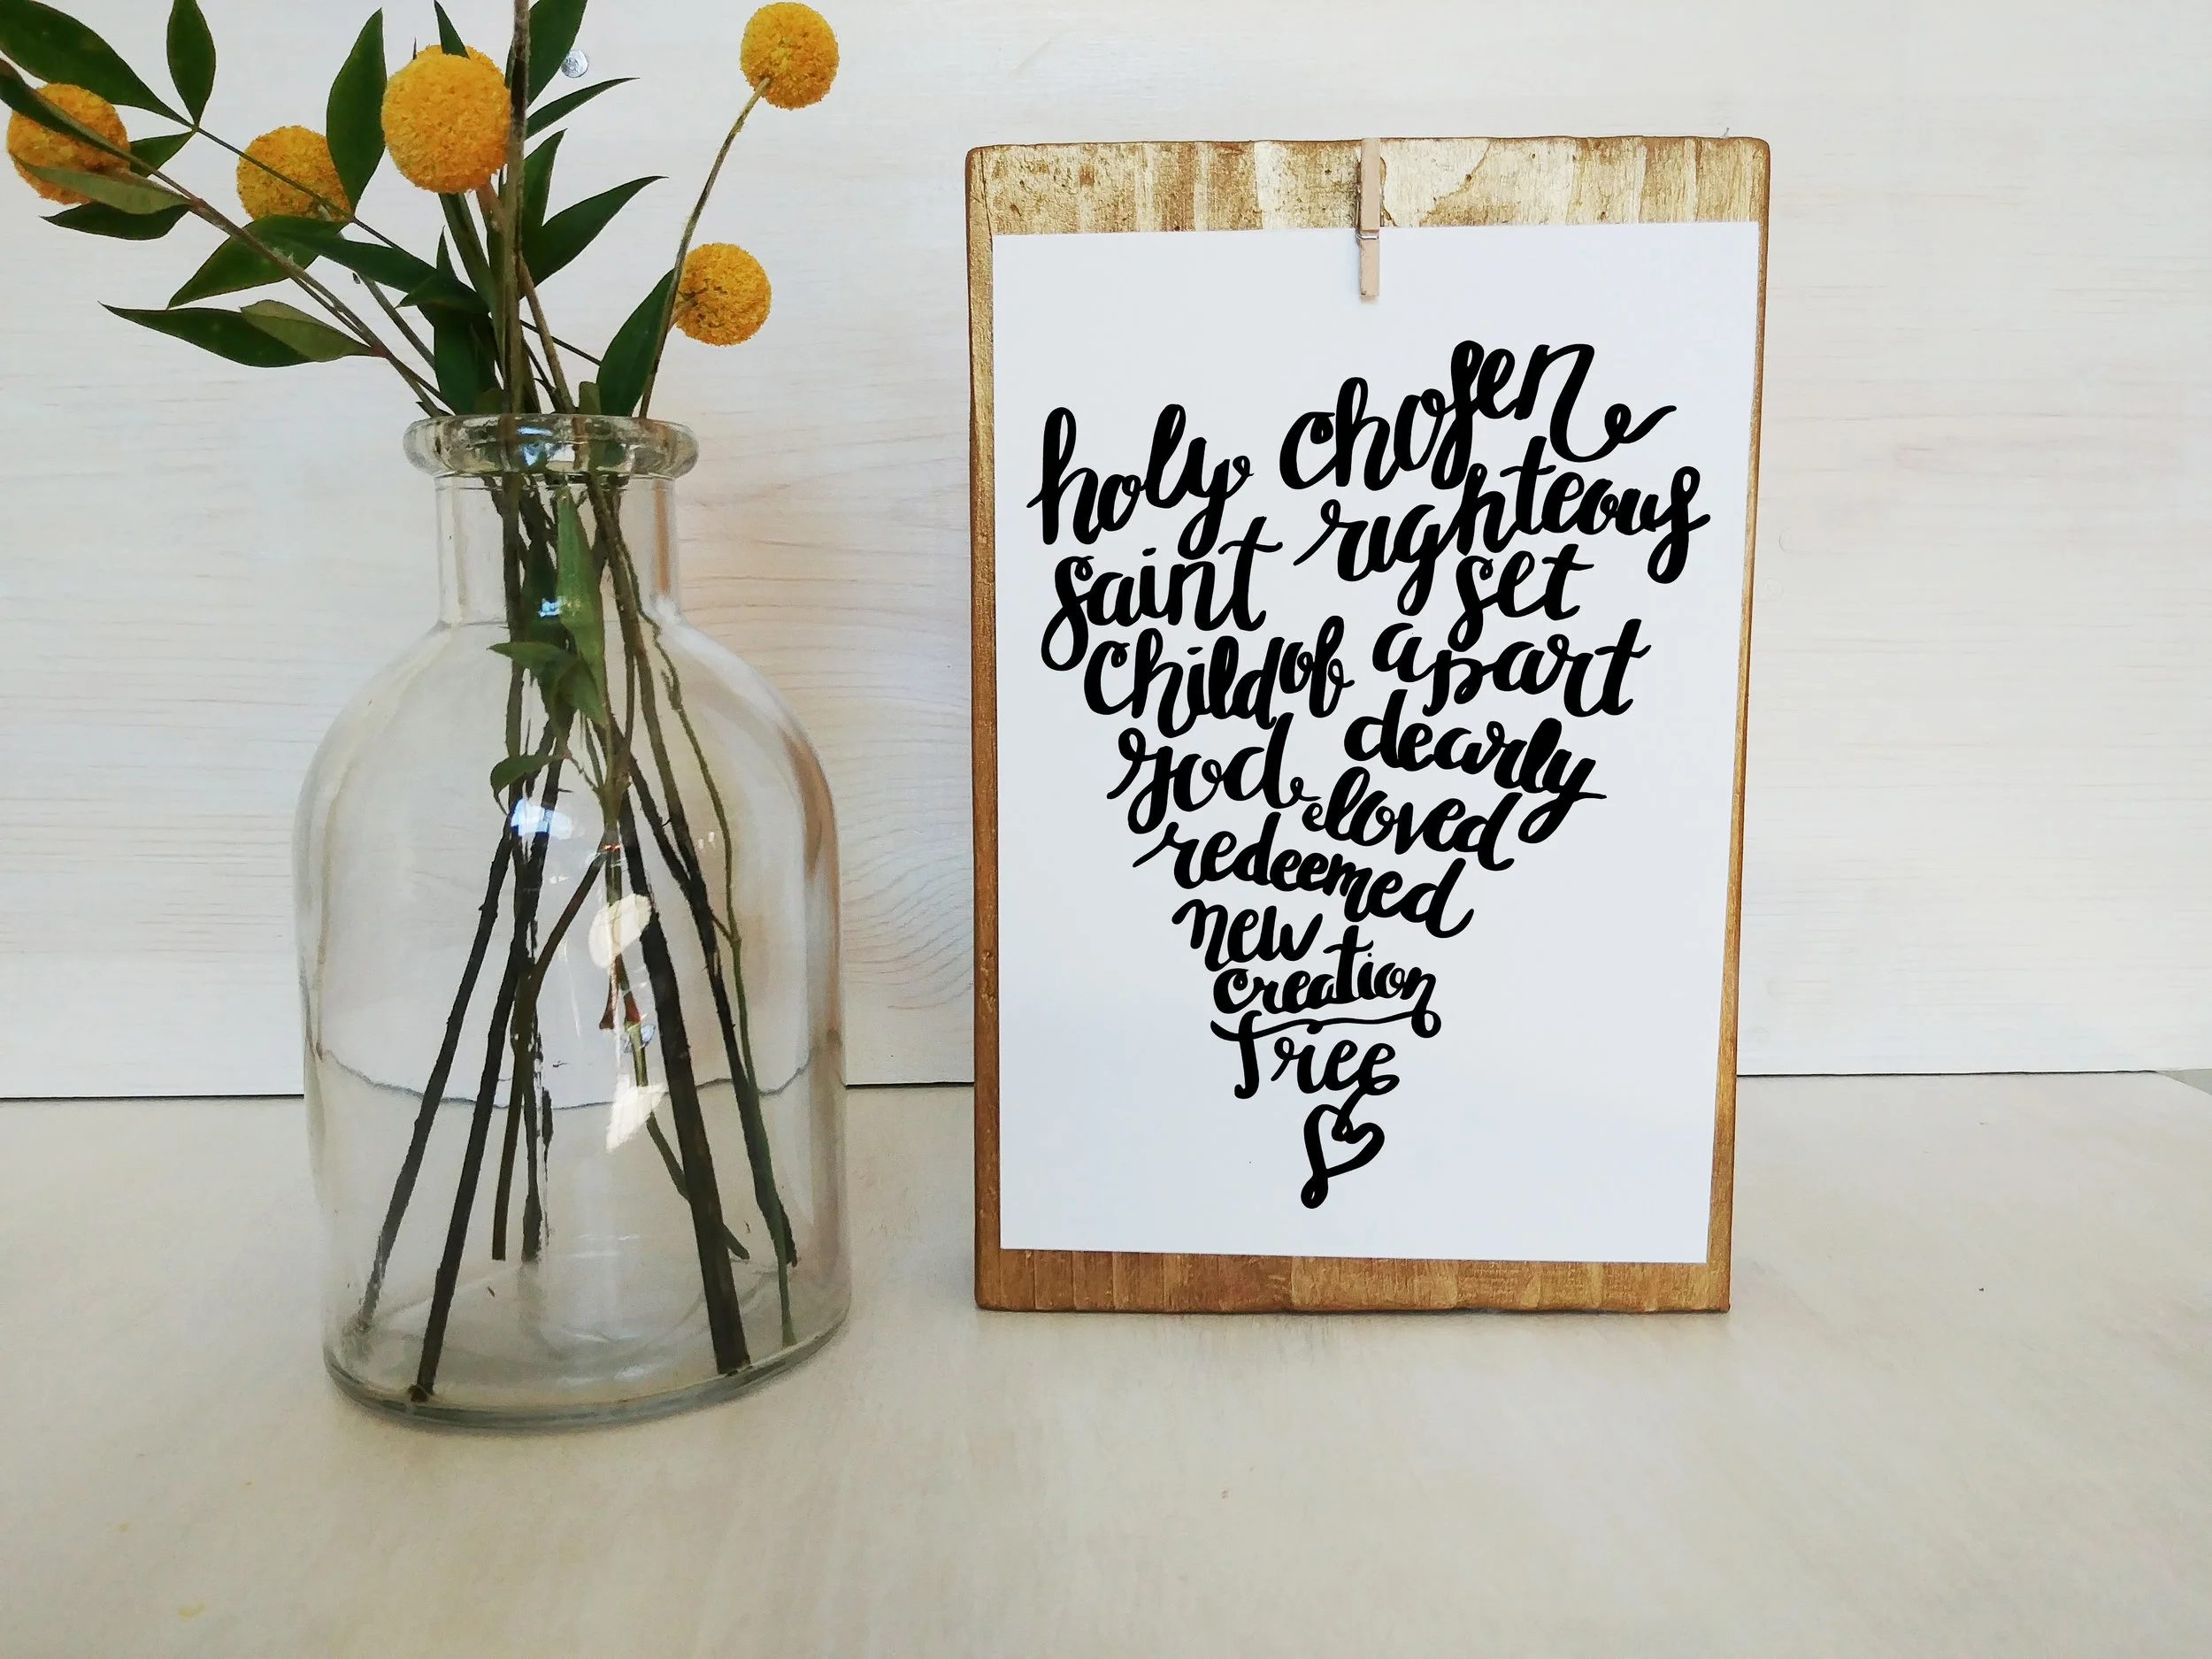 holy chosen
righteous
saint set
child of apart
god dearly
loved
redeemed
new
creation
free